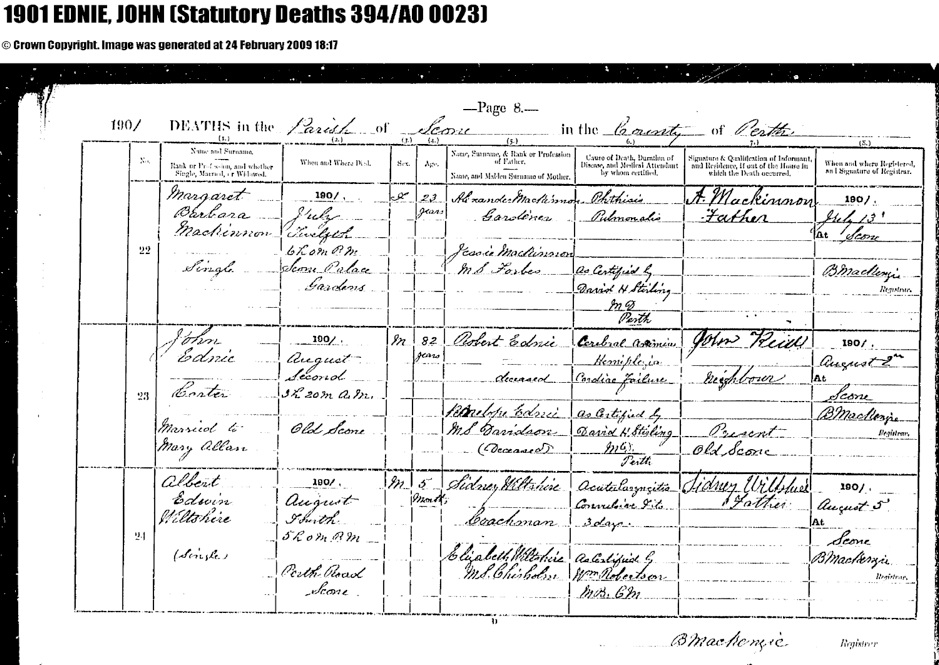 1901 EDNIE, JOHN (Statutory Deaths 394/A0 0023)
© Crown Copyright. Image was generated at 24 February 2009 18:17
—Page 8.—
1901 DEATHS in the Parish of Scone in the County of Perth
No.
(1.)
Name and Surname.
Rank or Profession, and whether
Single, Married, or Widowed.
(2.)
When and Where Died.
(3.)
Sex.
(4.)
Age.
(5.)
Name, Surname, & Rank or Profession
of Father.
Name, and Maiden Surname of Mother.
(6.)
Cause of Death, Duration of
Disease, and Medical Attendant
by whom certified.
(7.)
Signature & Qualification of Informant,
and Residence, if out of the House in
which the Death occurred.
(8.)
When and where Registered,
and Signature of Registrar.
22
Margaret
Barbara
Mackinnon
Single
1901.
July
Twelfth
6h. 0m P.M
Scone Palace
Gardens
F
23
years
Alexander Mackinnon
Gardener
Jessie Mackinnon
M.S. Forbes
Phthisis
Pulmonalis
As Certified by
David H Stirling
M.D
Perth
A. Mackinnon
Father
1901.
July 13th
At Scone
BMackenzie
Registrar.
23
John
Ednie
Carter
Married to
Mary Allan
1901.
August
Second
3h. 20m A.M.
Old Scone
M
82
years
Robert Ednie
deceased
Penelope Ednie
M.S. Davidson
(Deceased)
Cerebral
Hemiplegia
Cardiac Failure
as Certified by
David H. Stirling
M.D.
Perth
John Keills
Neighbour
Present
Old Scone
1901.
August 2nd
At
Scone
BMackenzie
Registrar.
24
Albert
Edwin
Wiltshire
(Single)
1901.
August
Fourth
5h 0m P.M
Perth Road
Scone
M
5
Months
Sidney Wiltshire
Coachman
Elizabeth Wiltshire
M.S. Chisholm
Acute Laryngitis
Convulsive Fits
3 days.
As Certified by
Wm Robertson
M.B. C.M
Sidney Wiltshire
Father
1901.
August 5
At
Scone
BMackenzie
Registrar.
D
BMackenzie Registrar